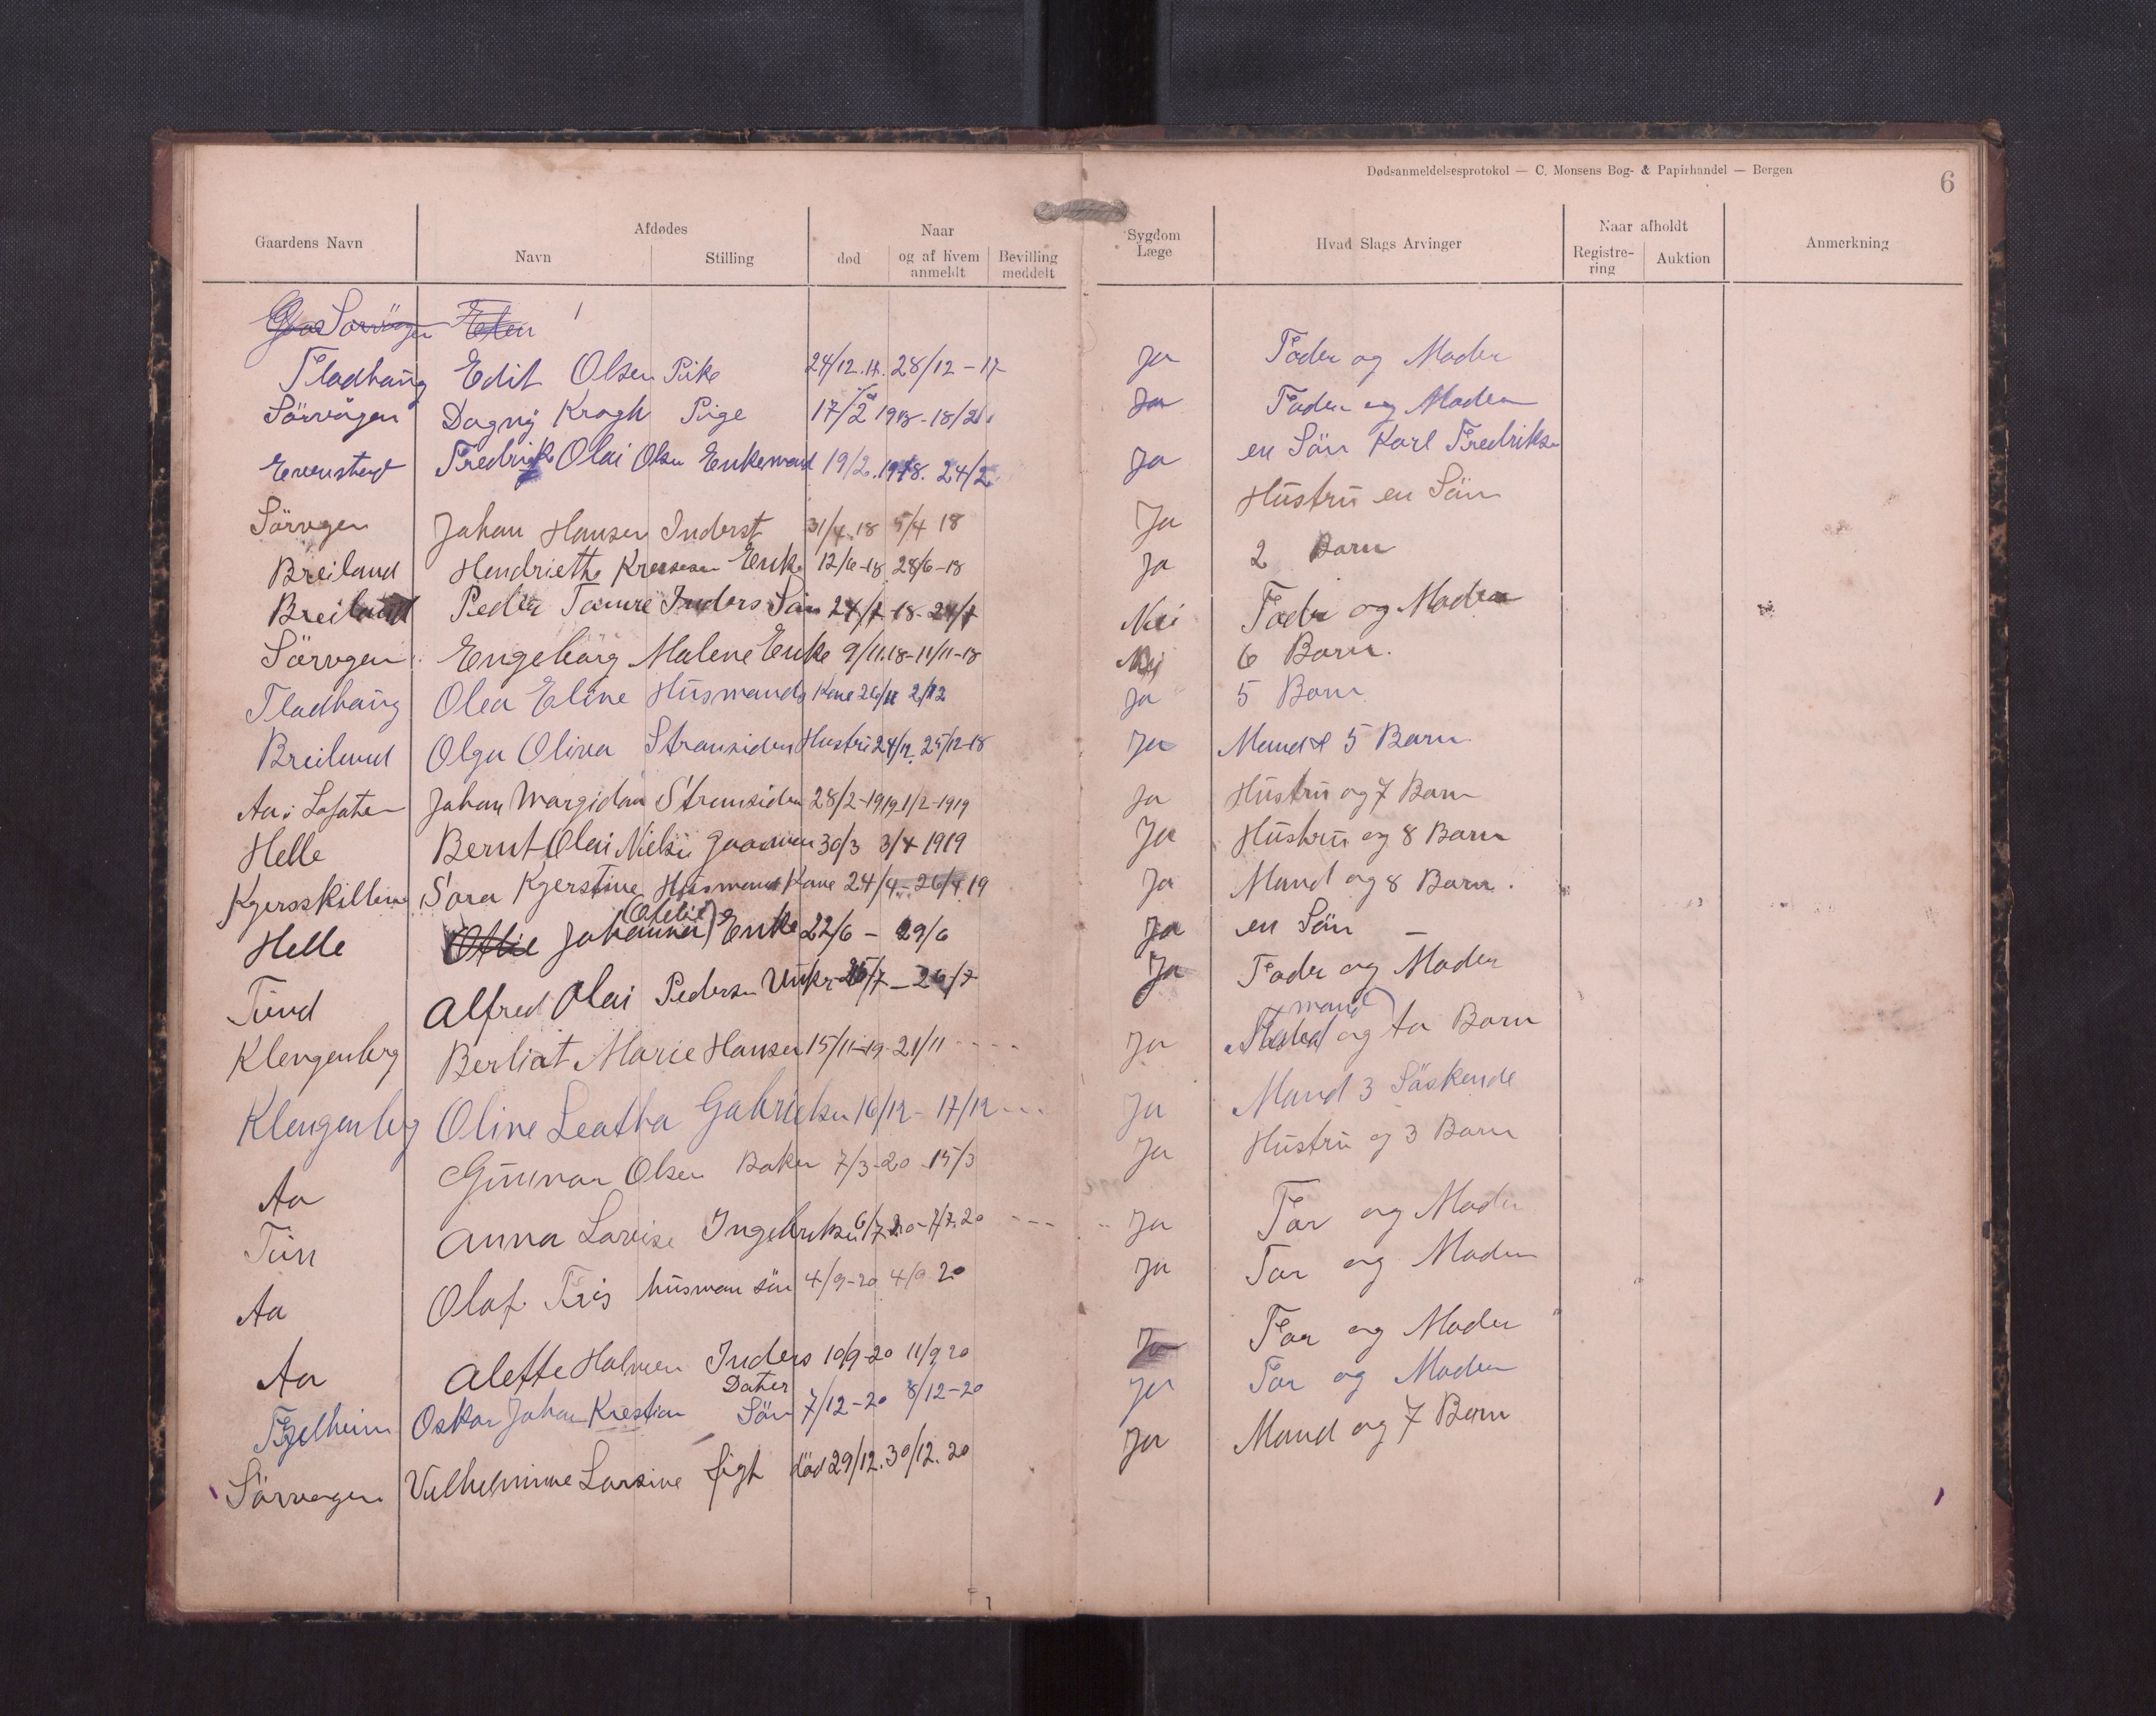 Dødsanmeldelsesprotokol — C. Monsens Bog- & Papirhandel — Bergen
6
Gaardens Navn Afdødes Navn Stilling Naar død og af hvem anmeldt Bevilling meddelt Sygdom Læge Hvad Slags Arvinger Naar afholdt Registrering Auktion Anmerkning
Sørvågen Elen
Fladhaug Edit Olsen Pike 24/12.17. 28/12-17 Ja Fader og Moder
Sörvågen Dagny Krogh Pige 17/2 1918-18/2 Ja Fader og Moder
Evenstad Fredrik Olai Olsen Enkemand 19/2.1918. 24/2 Ja en Sön Karl Fredriksen
Sörvgen Johan Hansen Inderst 31/4.18 5/4 18 Ja Hustru en Sön
Breiland Hendriette Enke 12/6-18 28/6-18 Ja 2 Barn
Breiland Peder Inders Sön 24/7-18-24/7 Nei Fader og Moder
Sörvgen Engebörg Malene Enke 9/11.18-11/11-18 Nej 6 Barn.
Fladhaug Olea Eline Husmands Kone 26/11 2/12 Ja 5 Barn
Breiland Olga Oliva Stransiden Hustru 24/12. 25/12-18 Ja Mand & 5 Barn
Aa i Lofoten Johan Margidan Stransiden 28/2-1919 1/2-1919 Ja Hustru og 7 Barn
Helle Bernt Olai Nielsen 30/3 3/4 1919 Ja Hustru og 8 Barn
Sara Kjerstine Husmand Kone 24/4-26/4 19 Ja Mand og 8 Barn.
Helle Otilie Johanna (Otelie) Enke 22/6 - 29/6 Ja en Sön
Tind Alfred Olai Pedersen 25/7-26/7 Ja Fader og Moder
Klengenberg Berliat Marie Hansen 15/11-19-21/11 Ja mand og to Barn
Klengenberg Oline Leatha Gabrielsen 16/12-17/12 Ja Mand 3 Söskende
Aa Gunnar Olsen Baker 7/3-20 15/3 Ja Hustru og 3 Barn
Tin Anna Lovise Ingebriktsen 6/7 20-7/7.20 Ja Far og Moder
Aa Olaf Fris husman sön 4/9-20 4/9 20 Ja Far og Moder
Aa Alette Halvren Inders Dater 10/9-20 11/9 20 Ja Far og Moder
Fjelheim Oskar Johan Krestian Sön 7/12-20 8/12-20 Ja Far og Moder
Sörvagen Vilhelmine Larsine figt död 29/12. 30/12.20 Ja Mand og 7 Barn